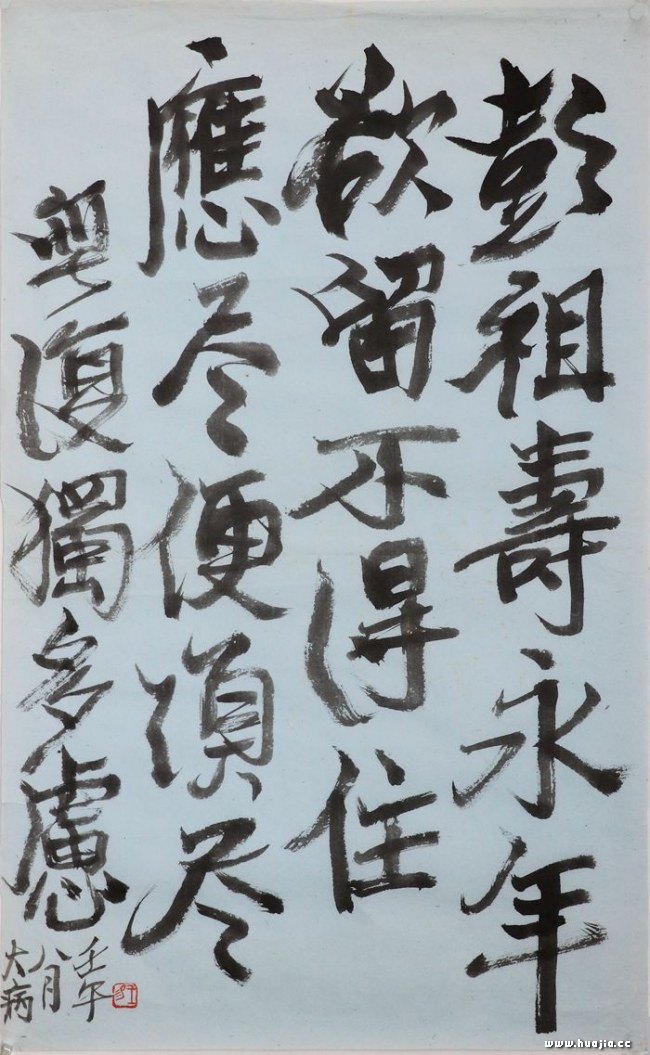 彭祖壽永年
欲留不得住
應尽便須尽
無復獨多慮
壬午
八月
大病
www.huajia.cc